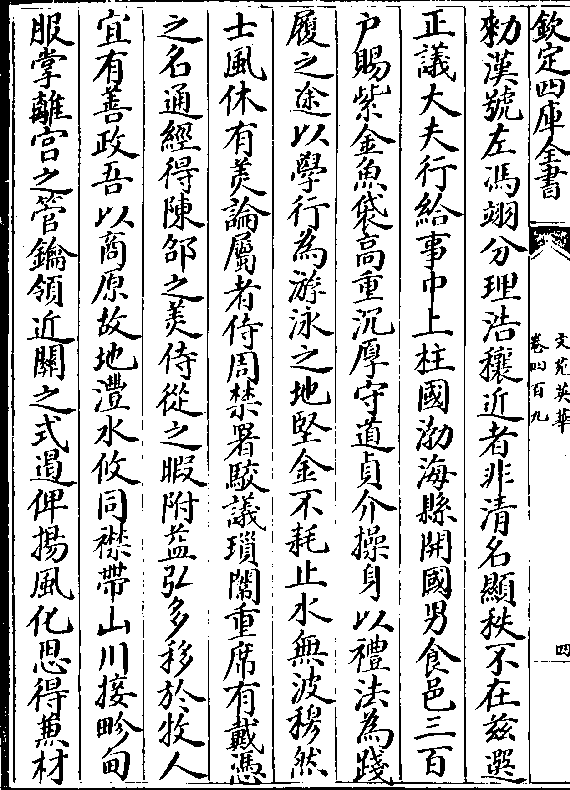 欽定四庫全書
文苑英華
卷四百九
四
勑漢號左馮翊分理浩穰近者非清名顯秩不在兹選
正議大夫行給事中上柱國渤海縣開國男食邑三百
户賜紫金魚袋高重沉厚守道貞介操身以禮法為踐
履之途以學行為游泳之地堅金不耗止水無波穆然
士風休有美論屬者侍周禁署駮議瑣闥重席有戴憑
之名通經得陳邵之美侍從之暇附益弘多移於牧人
宜有善政吾以商原故地灃水攸同襟帶山川接畛甸
服掌離宫之管鑰領近關之式遏俾揚風化思得蒹材